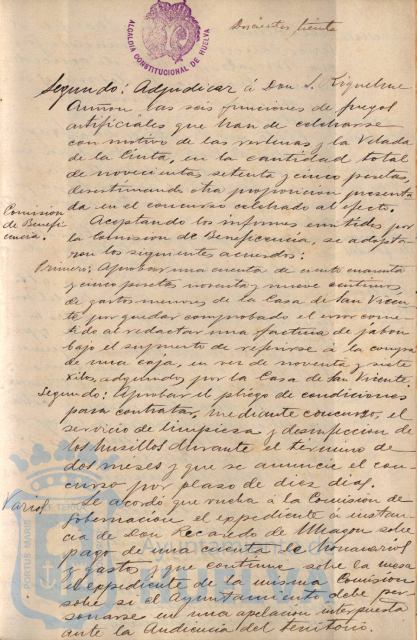 ALCALDÍA CONSTITUCIONAL DE HUELVA
Doscientos treinta
Segundo: Adjudicar á Don S. Riquelme
las seis funciones de fuegos
artificiales que han de celebrarse
con motivo de las verbenas y la Velada
de la Cinta, en la cantidad total
de novecientas setenta y cinco pesetas,
desestimando otra proposicion presenta
da en el concurso celebrado al efecto.
Comision
de Benefi
cencia.
Aceptando los informes emitidos por
la Comision de Beneficencia, se adopta
ron los siguientes acuerdos:
Primero: Aprobar una cuenta de ciento cuarenta
y cinco pesetas noventa y nueve centimos,
de gastos menores de la Casa de San Vicen
te por quedar comprobado el error come
tido al redactar una factura de jabon
bajo el supuesto de referirse á la compra
de una caja, en vez de noventa y siete
kilos, adquiridos por la Casa de San Vicente.
Segundo: Aprobar el pliego de condiciones
para contratar, mediante concurso, el
servicio de limpieza y desinfeccion de
los husillos durante el término de
dos meses y que se anuncie el con
curso por plazo de diez dias.
Varios.
Se acordó que vuelva á la Comision de
Gobernacion el expediente á instan
cia de Don Ricardo de sobre
pago de una cuenta de honorarios
y gastos y que continue sobre la mesa
el expediente de la misma Comision
sobre si el Ayuntamiento debe per
sonarse en una apelacion interpuesta
ante la Audiencia del territorio.
PORTUS MARIS ET TERRAE
Ayuntamiento de
HUELVA